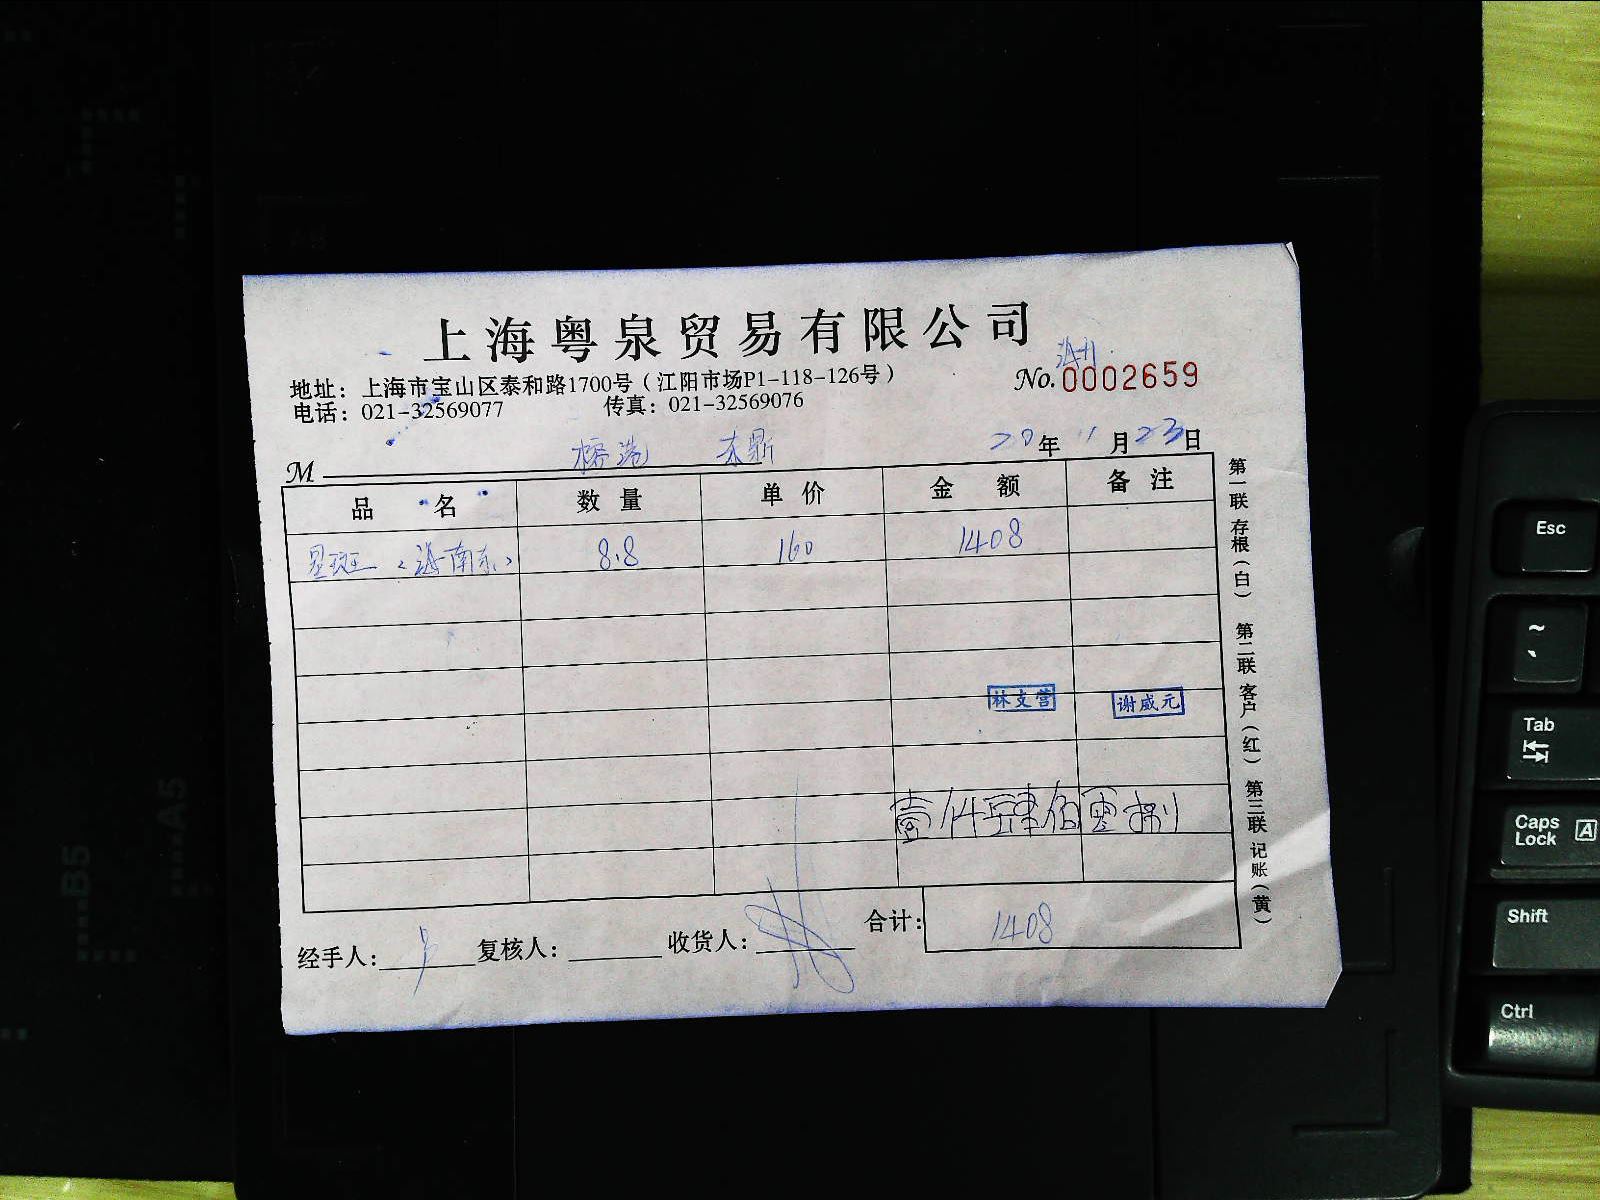 上海粤泉贸易有限公司
地址：上海市宝山区泰和路1700号（江阳市场P1-118-126号）
No. 0002659
电话：021-32569077 传真：021-32569076
20年11月23日
M
品名 数量 单价 金额 备注
星斑（海南东） 8.8 160 1408
林支营 谢威元
壹仟肆佰零捌
合计： 1408
经手人： 复核人： 收货人：
第一联 存根（白） 第二联 客户（红） 第三联 记账（黄）
B5
A5
Esc
~
`
Tab
Caps Lock A
Shift
Ctrl